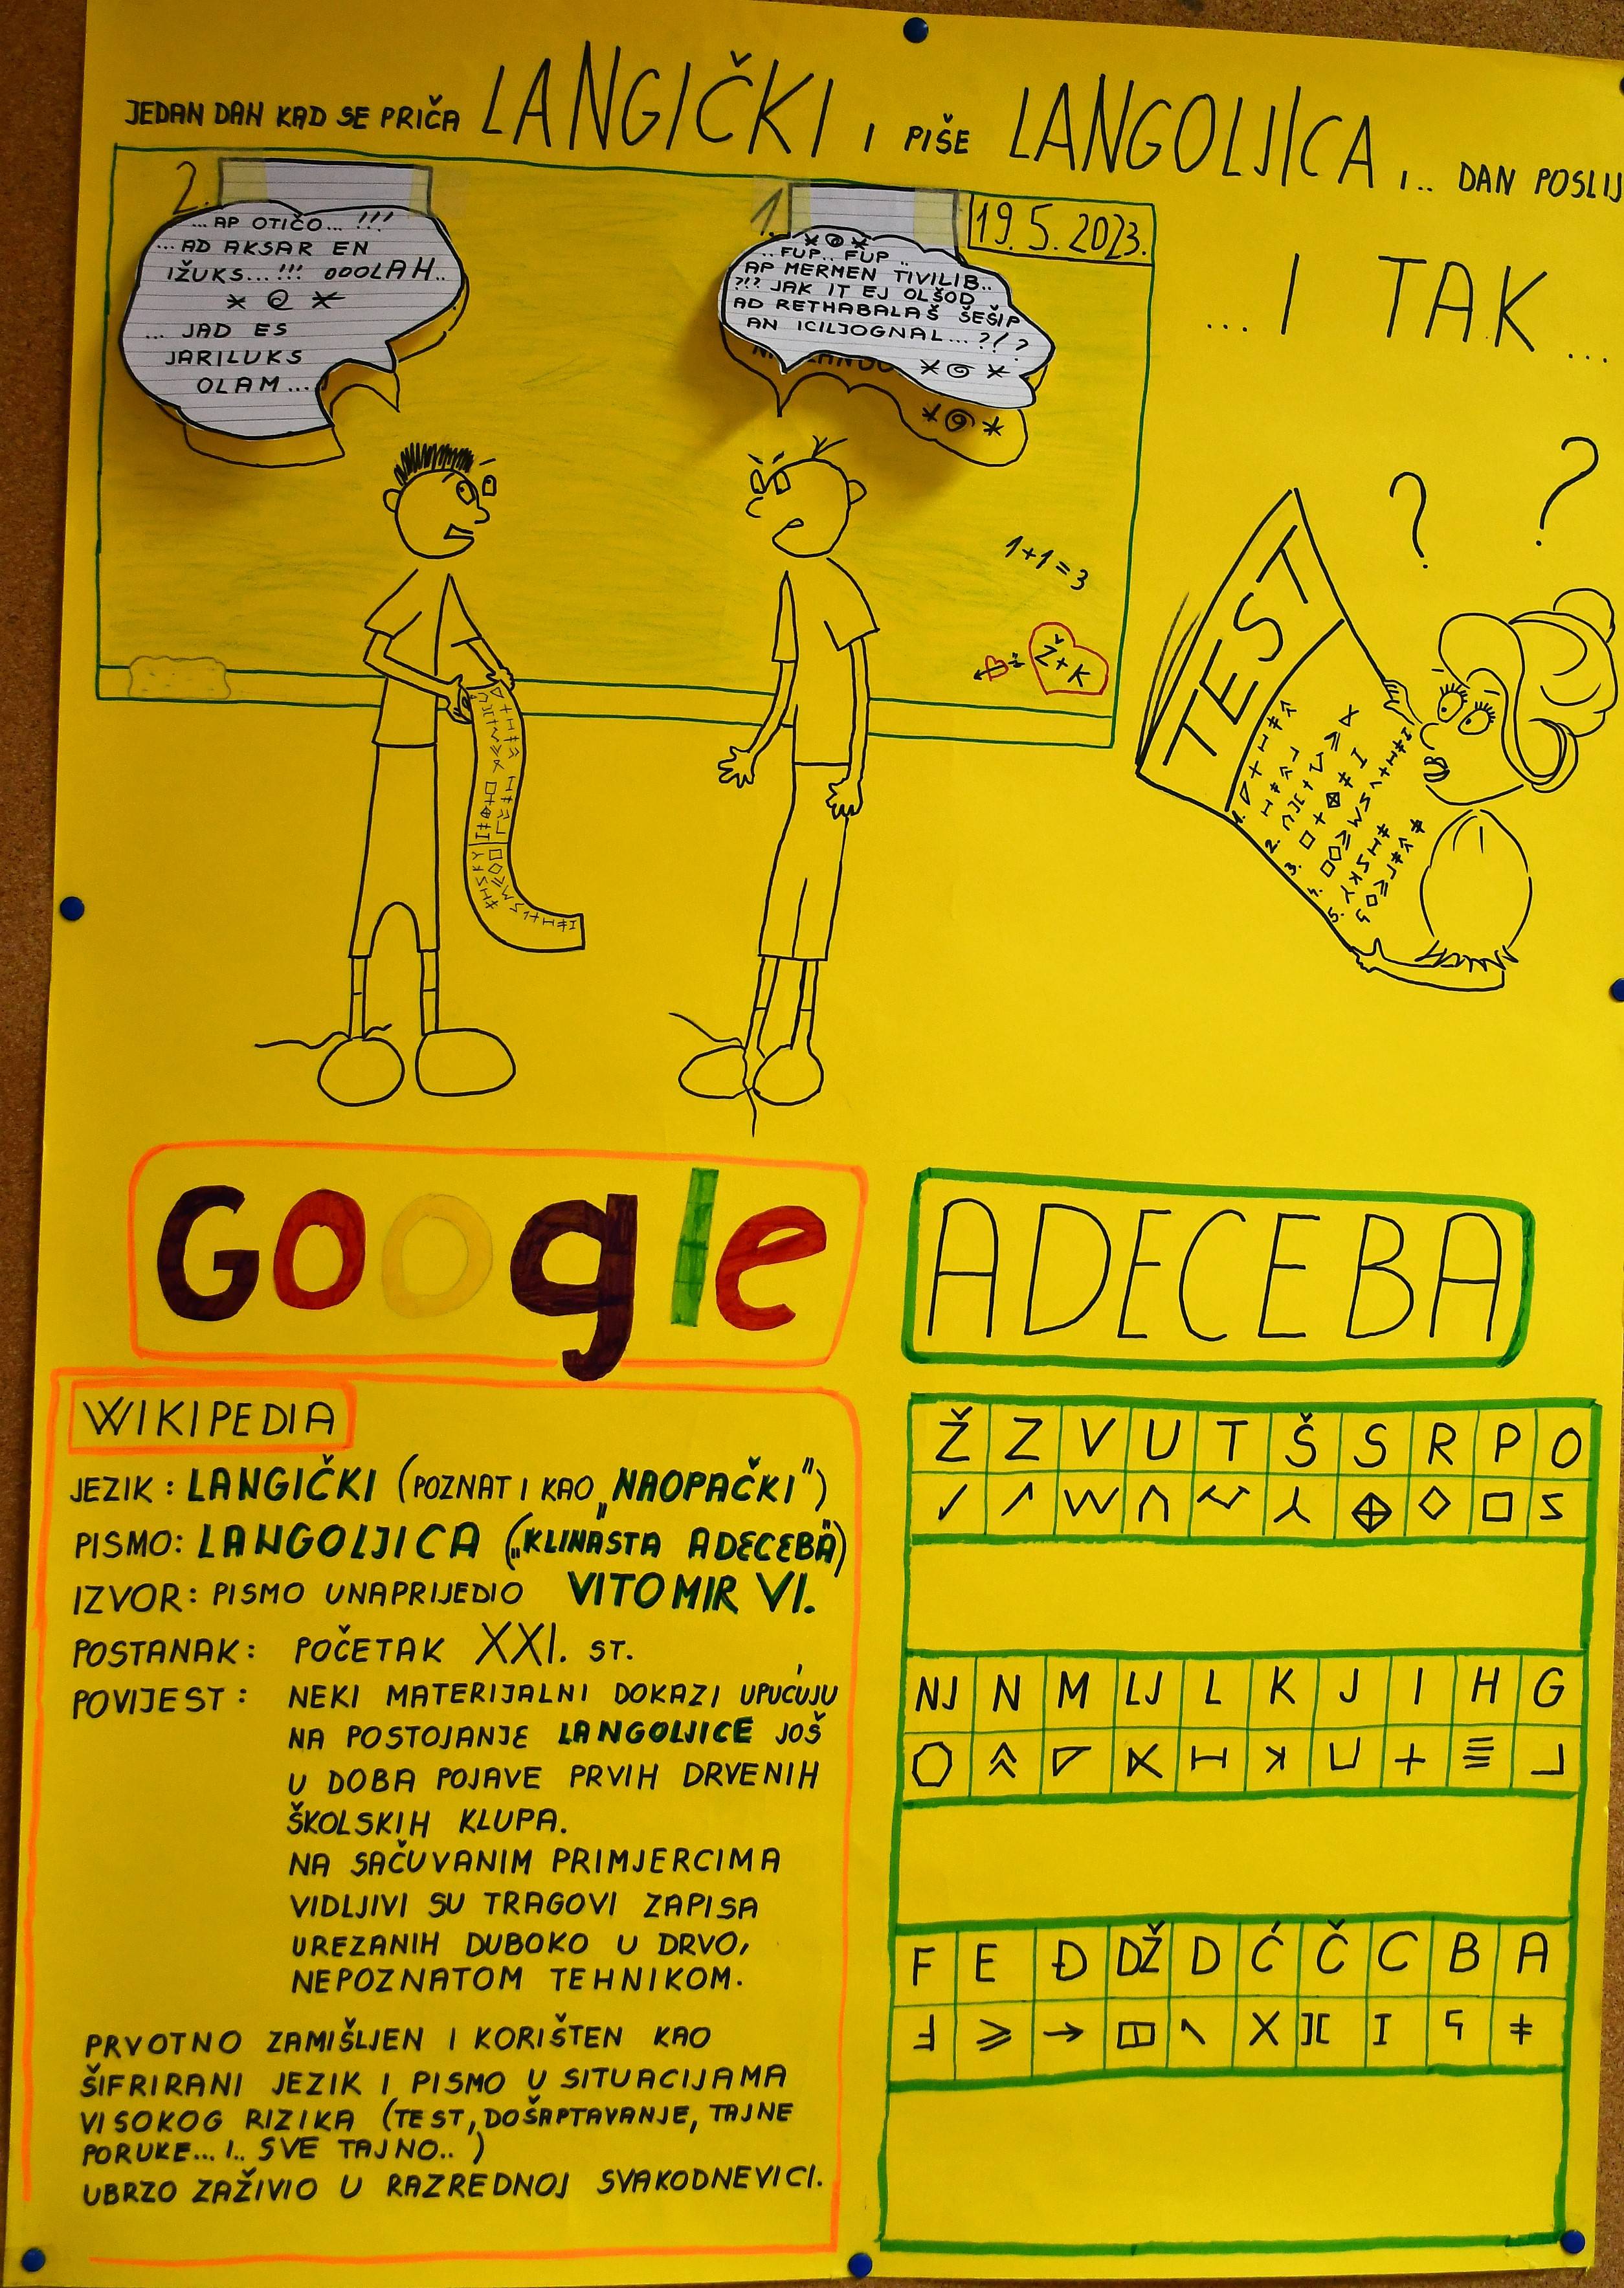 JEDAN DAN KAD SE PRIČA LANGIČKI I PIŠE LANGOLJICA I.. DAN POSLIJ
2.
... AP OTIČO... !!!
... AD AKSAR EN
IŽUKS...!!! OOOLAH..
... JAD ES
JARILUKS
OLAM...
1.
.. FUP.. FUP ..
AP MERMEN TIVILIB..
?!? JAK IT EJ OLŠOD
AD RETHABALAŠ ŠEŠIP
AN ICILJOGNAL...?!?
19.5.2023.
...I TAK...
? ?
1+1=3
Ž+K
TEST
1.
2.
3.
4.
5.
Google
ADECEBA
WIKIPEDIA
JEZIK: LANGIČKI (POZNAT I KAO „NAOPAČKI")
PISMO: LANGOLJICA („KLINASTA ADECEBA")
IZVOR: PISMO UNAPRIJEDIO VITOMIR VI.
POSTANAK: POČETAK XXI. ST.
POVIJEST: NEKI MATERIJALNI DOKAZI UPUĆUJU
NA POSTOJANJE LANGOLJICE JOŠ
U DOBA POJAVE PRVIH DRVENIH
ŠKOLSKIH KLUPA.
NA SAČUVANIM PRIMJERCIMA
VIDLJIVI SU TRAGOVI ZAPISA
UREZANIH DUBOKO U DRVO,
NEPOZNATOM TEHNIKOM.
PRVOTNO ZAMIŠLJEN I KORIŠTEN KAO
ŠIFRIRANI JEZIK I PISMO U SITUACIJAMA
VISOKOG RIZIKA (TEST, DOŠAPTAVANJE, TAJNE
PORUKE... I.. SVE TAJNO..)
UBRZO ZAŽIVIO U RAZREDNOJ SVAKODNEVICI.
Ž Z V U T Š S R P O
NJ N M LJ L K J I H G
F E Đ DŽ D Ć Č C B A